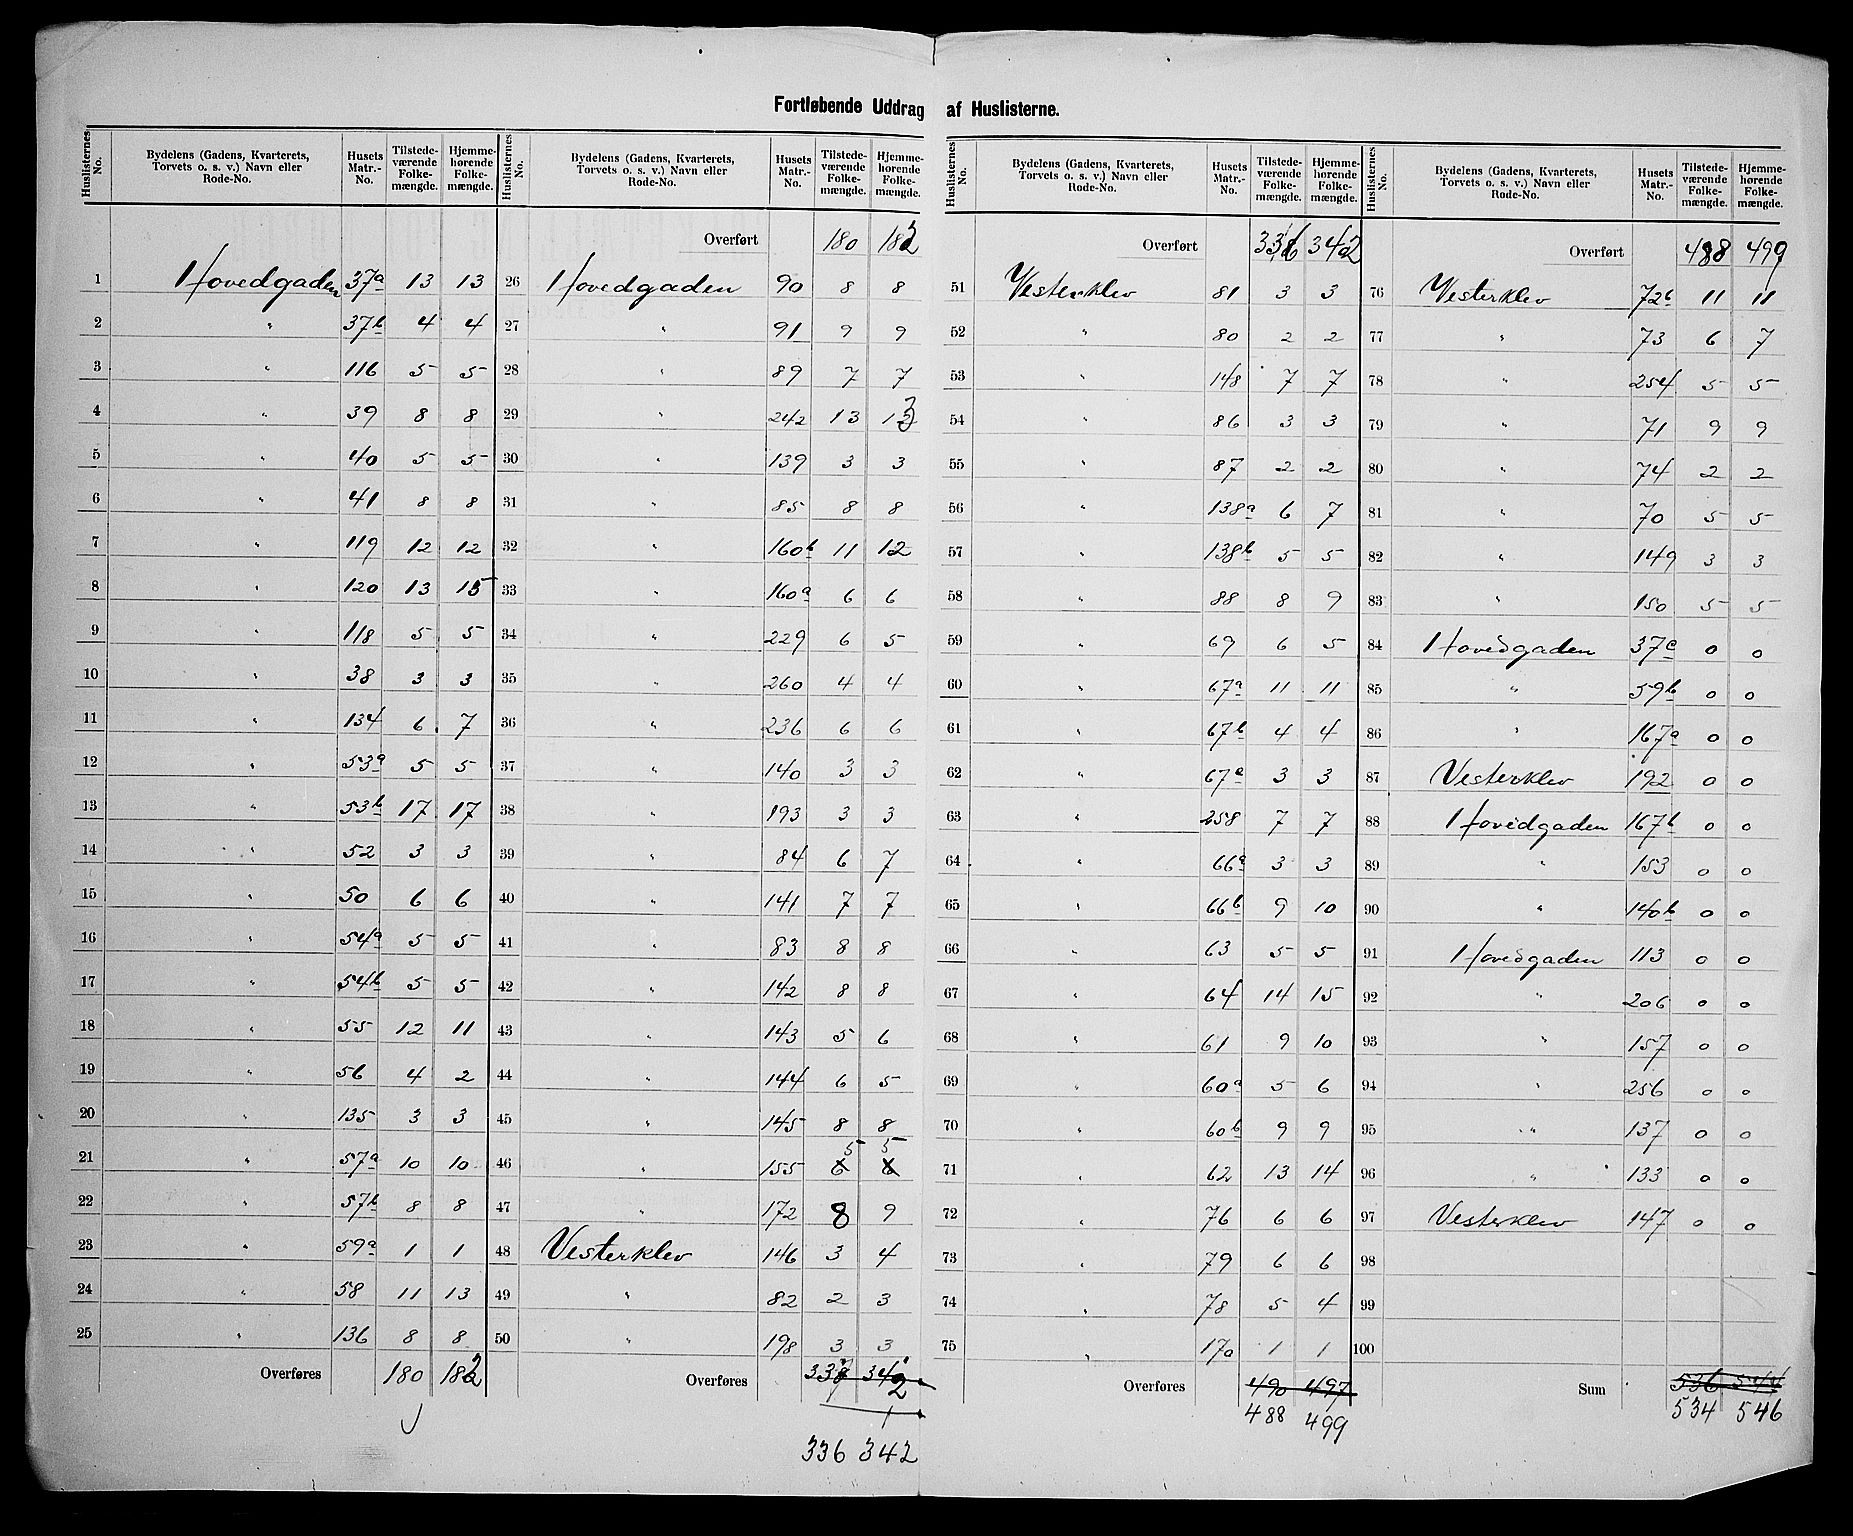 Fortløbende Uddrag af Huslisterne.
Huslisternes No. | Bydelens (Gadens, Kvarterets, Torvets o. s. v.) Navn eller Rode-No. | Husets Matr.-No. | Tilstedeværende Folkemængde. | Hjemmehørende Folkemængde.
1 Hovedgaden 37a 13 13
2 " 37b 4 4
3 " 116 5 5
4 " 39 8 8
5 " 40 5 5
6 " 41 8 8
7 " 119 12 12
8 " 120 13 15
9 " 118 5 5
10 " 38 3 3
11 " 134 6 7
12 " 53a 5 5
13 " 53b 17 17
14 " 52 3 3
15 " 50 6 6
16 " 54a 5 5
17 " 54b 5 5
18 " 55 12 11
19 " 56 4 2
20 " 135 3 3
21 " 57a 10 10
22 " 57b 8 8
23 " 59a 1 1
24 " 58 11 13
25 " 136 8 8
Overføres 180 182
Huslisternes No. | Bydelens (Gadens, Kvarterets, Torvets o. s. v.) Navn eller Rode-No. | Husets Matr.-No. | Tilstedeværende Folkemængde. | Hjemmehørende Folkemængde.
Overført 180 182
26 Hovedgaden 90 8 8
27 " 91 9 9
28 " 89 7 7
29 " 242 13 13
30 " 139 3 3
31 " 85 8 8
32 " 160b 11 12
33 " 160a 6 6
34 " 229 6 5
35 " 260 4 4
36 " 236 6 6
37 " 140 3 3
38 " 193 3 3
39 " 84 6 7
40 " 141 7 7
41 " 83 8 8
42 " 142 8 8
43 " 143 5 6
44 " 144 6 5
45 " 145 8 8
46 " 155 5 5
47 " 172 8 9
48 Vesterklev 146 3 4
49 " 82 2 3
50 " 198 3 3
Overføres
336 342
Huslisternes No. | Bydelens (Gadens, Kvarterets, Torvets o. s. v.) Navn eller Rode-No. | Husets Matr.-No. | Tilstedeværende Folkemængde. | Hjemmehørende Folkemængde.
Overført 336 342
51 Vesterklev 81 3 3
52 " 80 2 2
53 " 148 7 7
54 " 86 3 3
55 " 87 2 2
56 " 138a 6 7
57 " 138b 5 5
58 " 88 8 9
59 " 69 6 5
60 " 67a 11 11
61 " 67b 4 4
62 " 67a 3 3
63 " 258 7 7
64 " 66a 3 3
65 " 66b 9 10
66 " 63 5 5
67 " 64 14 15
68 " 61 9 10
69 " 60a 5 6
70 " 60b 9 9
71 " 62 13 14
72 " 76 6 6
73 " 79 6 6
74 " 78 5 4
75 " 170 1 1
Overføres 490 497
488 499
Huslisternes No. | Bydelens (Gadens, Kvarterets, Torvets o. s. v.) Navn eller Rode-No. | Husets Matr.-No. | Tilstedeværende Folkemængde. | Hjemmehørende Folkemængde.
Overført 488 499
76 Vesterklev 72b 11 11
77 " 73 6 7
78 " 254 5 5
79 " 71 9 9
80 " 74 2 2
81 " 70 5 5
82 " 149 3 3
83 " 150 5 5
84 Hovedgaden 37c 0 0
85 " 59b 0 0
86 " 167a 0 0
87 Vesterklev 192 0 0
88 Hovedgaden 167b 0 0
89 " 153 0 0
90 " 140b 0 0
91 Hovedgaden 113 0 0
92 " 206 0 0
93 " 157 0 0
94 " 256 0 0
95 " 137 0 0
96 " 133 0 0
97 Vesterklev 147 0 0
98
99
100
Sum 536 544
534 546